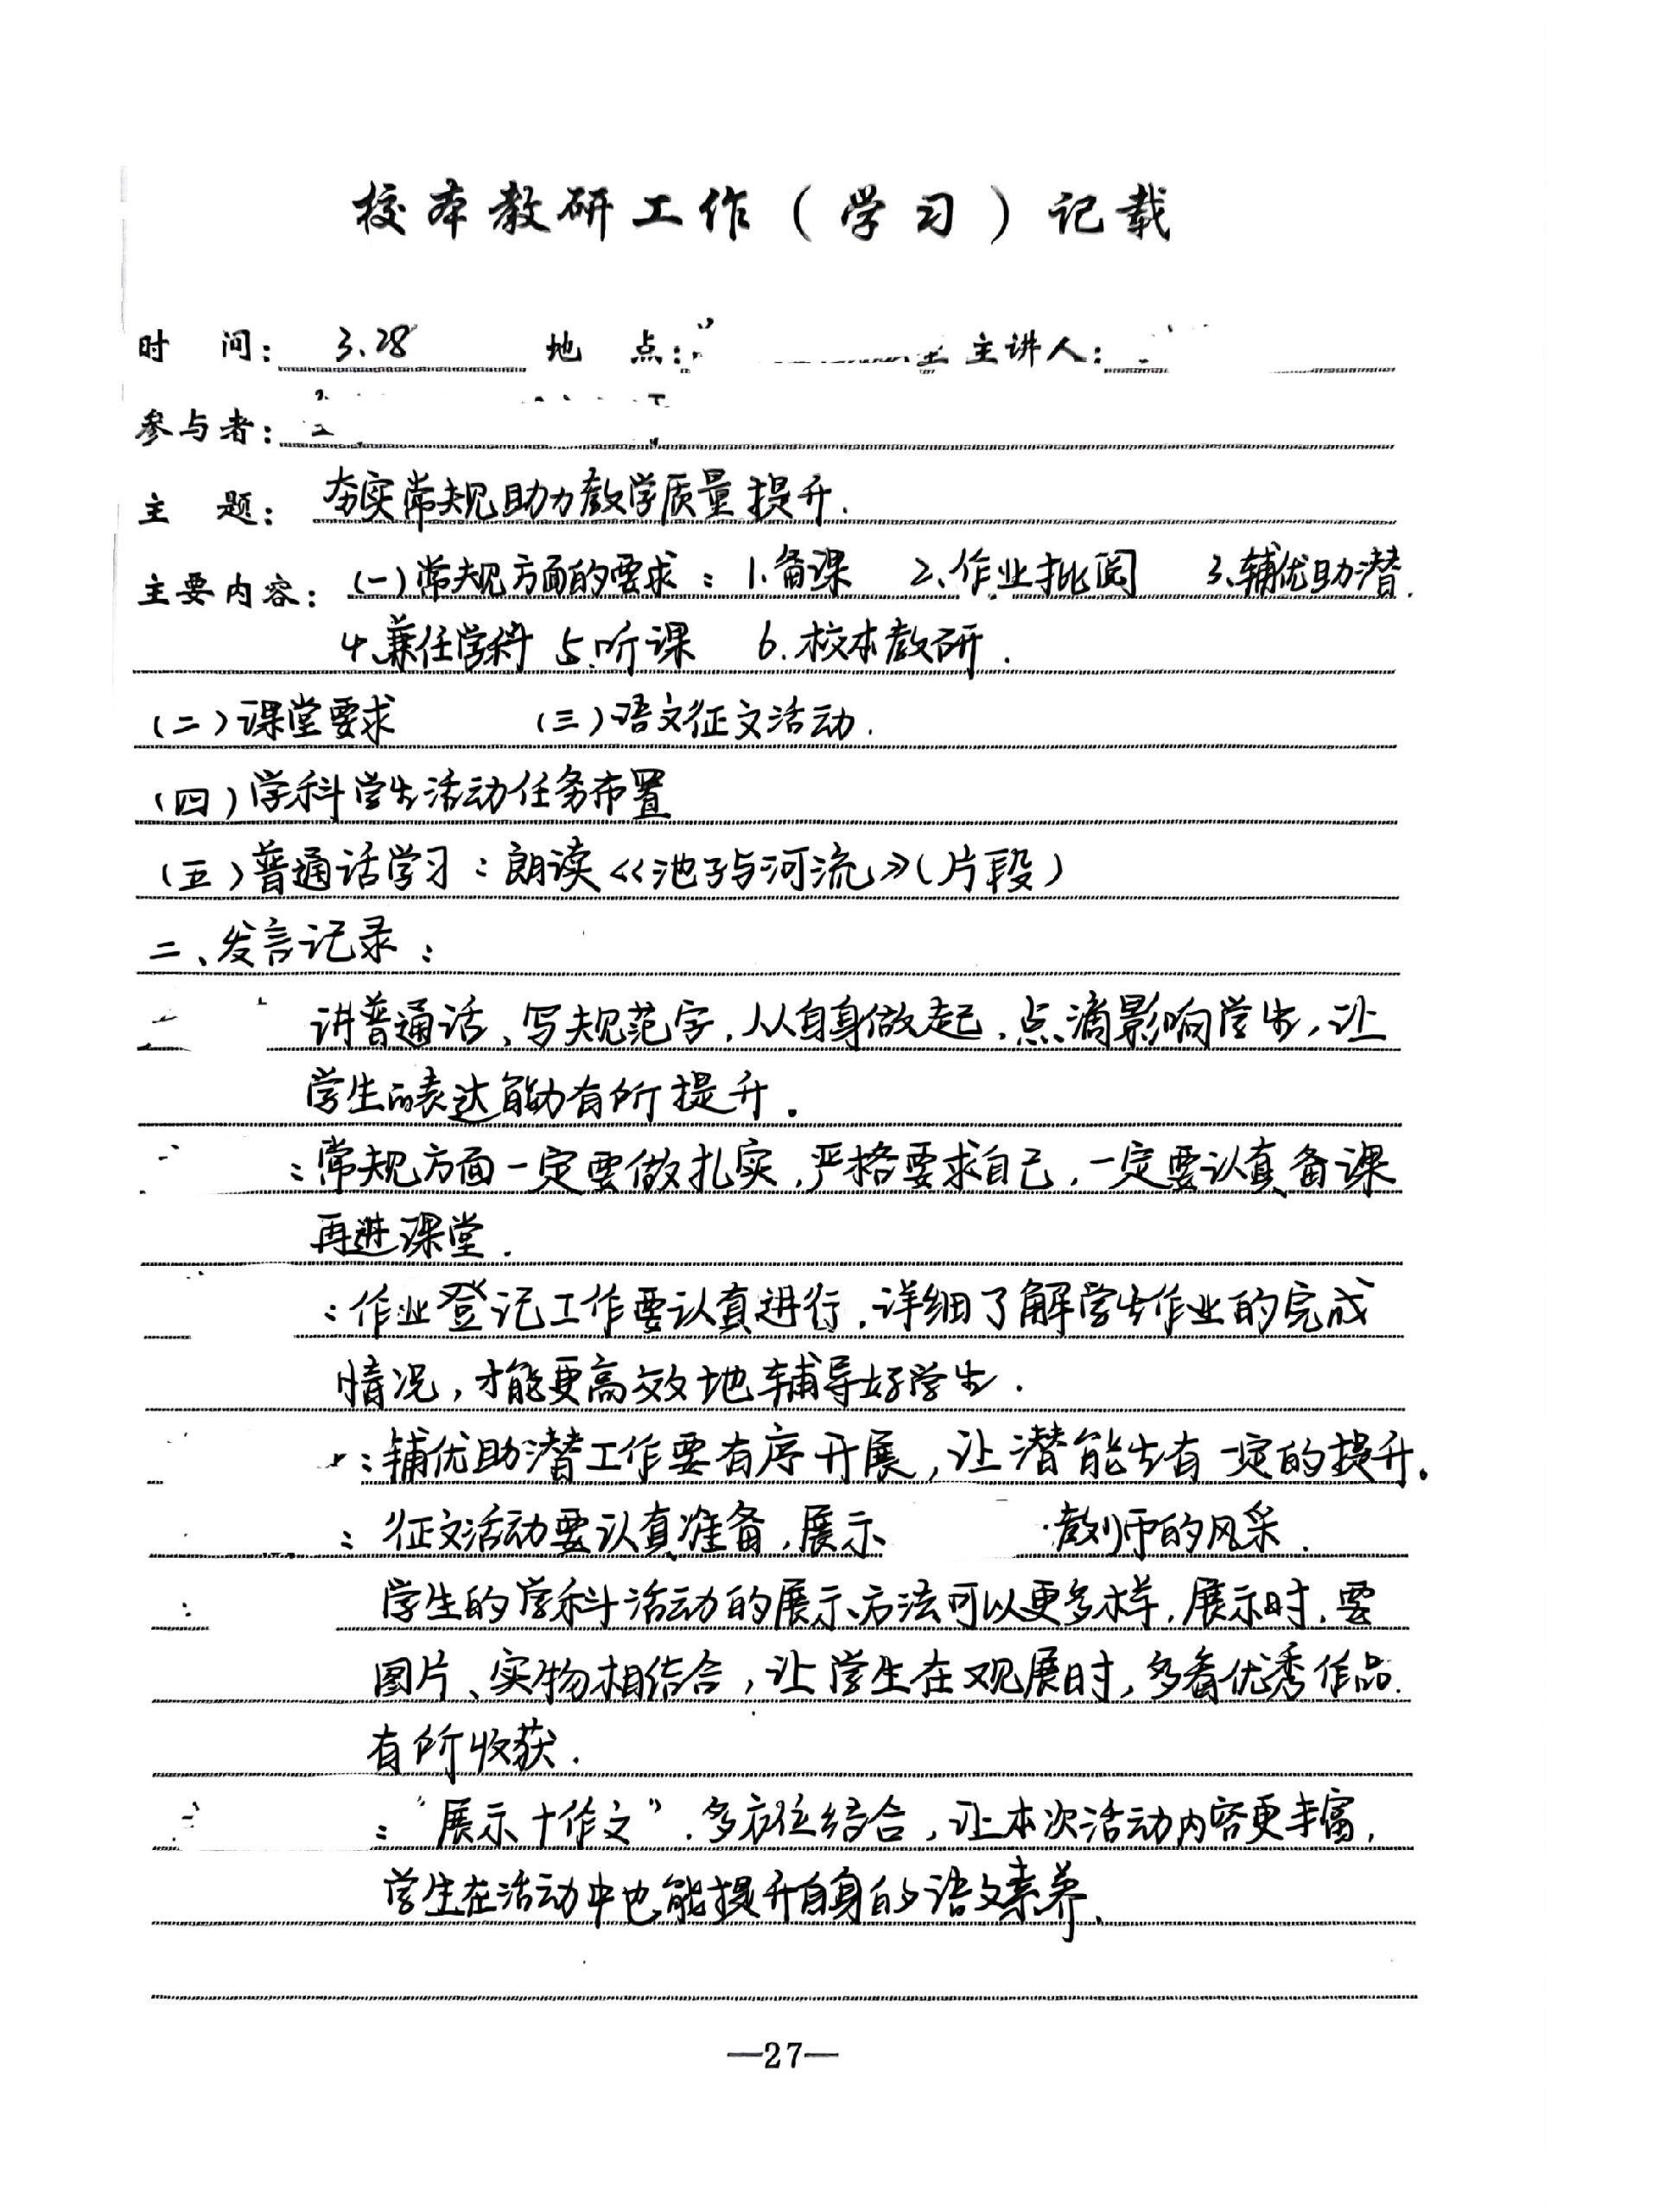 校本教研工作(学习)记载
时 间: 3.28 地 点: 主讲人:
参与者:
主 题: 夯实常规助力教学质量提升.
主要内容: (一)常规方面的要求: 1.备课 2.作业批阅 3.辅优助潜.
4.兼任学科 5.听课 6.校本教研.
(二)课堂要求 (三)语文征文活动.
(四)学科学生活动任务布置
(五)普通话学习:朗读《池子与河流》(片段)
二、发言记录:
讲普通话、写规范字,从自身做起,点滴影响学生,让
学生的表达能力有所提升。
:常规方面一定要做扎实,严格要求自己,一定要认真备课
再进课堂.
:作业登记工作要认真进行,详细了解学生作业的完成
情况,才能更高效地辅导好学生.
:辅优助潜工作要有序开展,让潜能生有一定的提升。
:征文活动要认真准备,展示 教师的风采.
学生的学科活动的展示方法可以更多样,展示时,要
图片、实物相结合,让学生在观展时,多看优秀作品.
有所收获.
:“展示+作文”.多方位结合,让本次活动内容更丰富,
学生在活动中也能提升自身的语文素养.
—27—